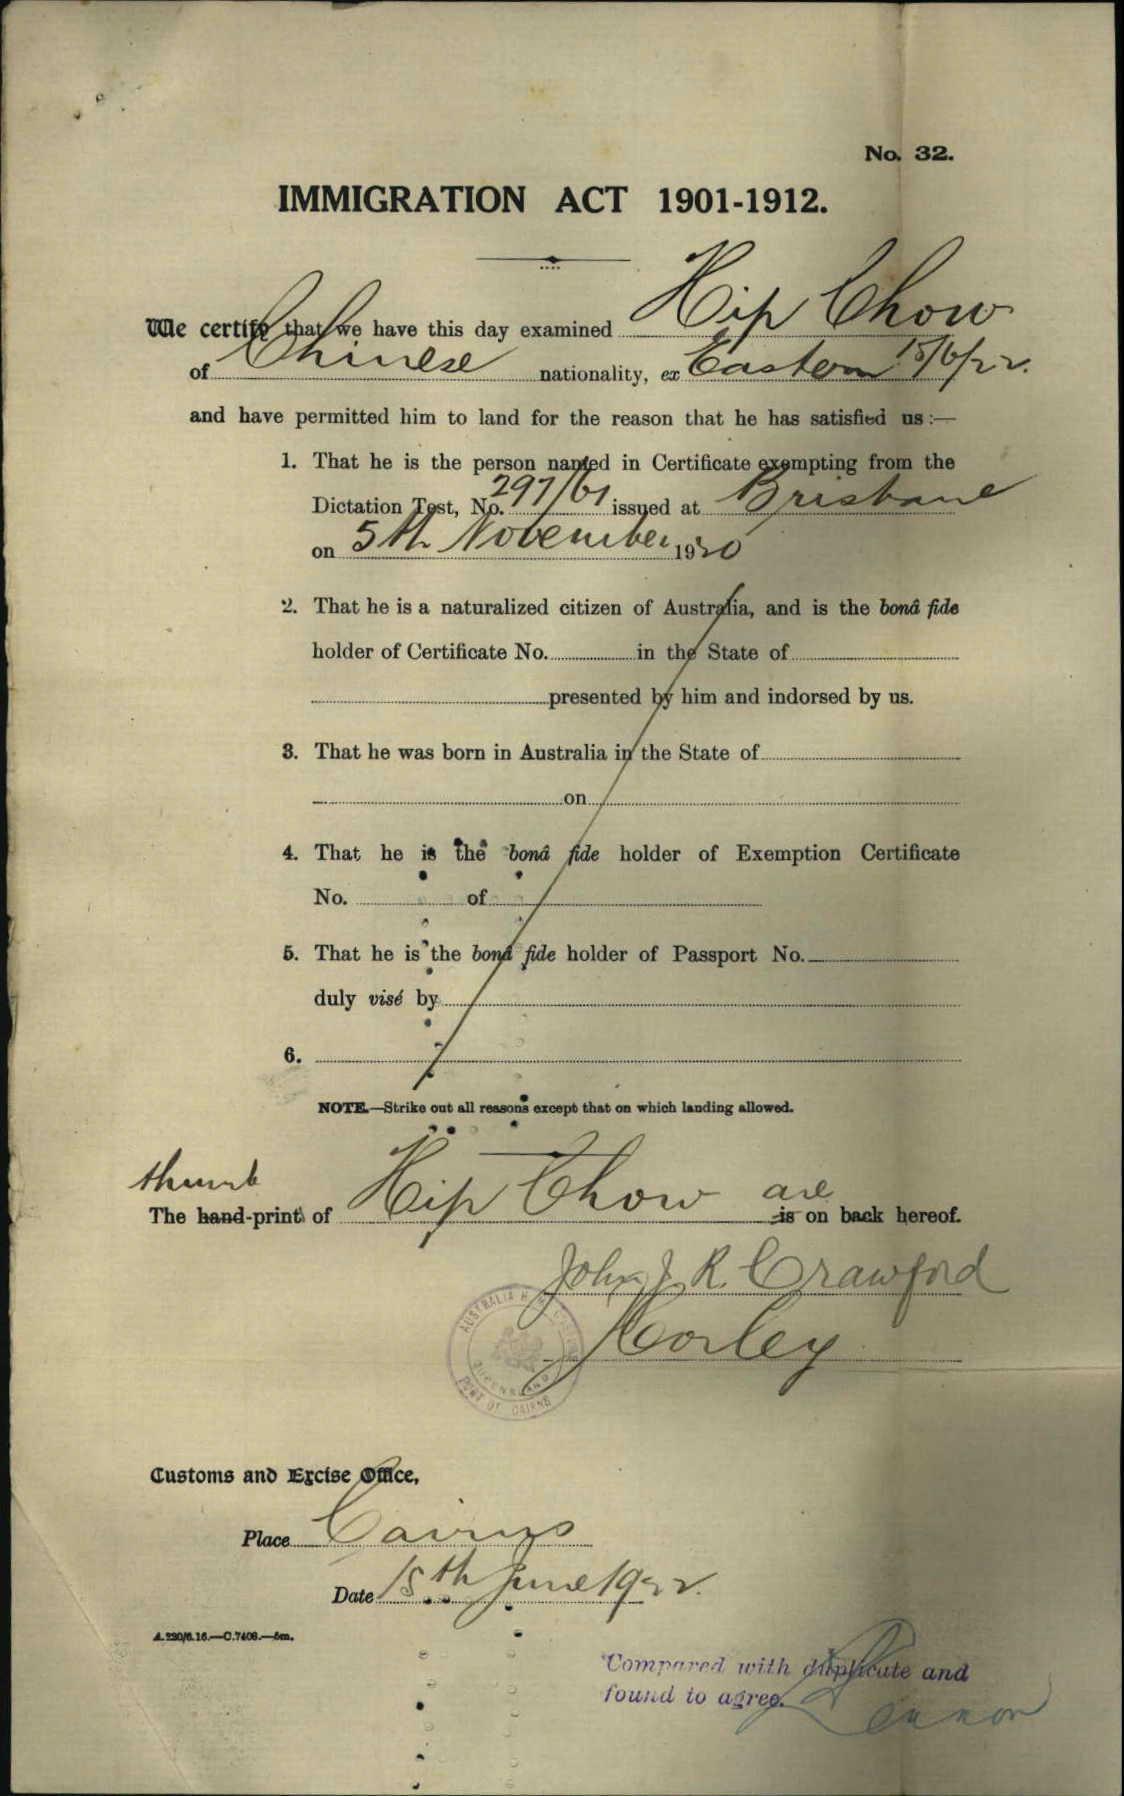 No. 32.
IMMIGRATION ACT 1901-1912.
We certify that we have this day examined Hip Chow
of Chinese nationality, ex Eastern 15/6/22.
and have permitted him to land for the reason that he has satisfied us :—
1. That he is the person named in Certificate exempting from the
Dictation Test, No. 297/61 issued at Brisbane
on 5th November 1920
2. That he is a naturalized citizen of Australia, and is the bonâ fide
holder of Certificate No. in the State of
presented by him and indorsed by us.
3. That he was born in Australia in the State of
on
4. That he is the bonâ fide holder of Exemption Certificate
No. of
5. That he is the bonâ fide holder of Passport No.
duly visé by
6.
NOTE.—Strike out all reasons except that on which landing allowed.
thumb
The hand-print of Hip Chow are is on back hereof.
John J. R. Crawford
Corley
AUSTRALIA H.M. CUSTOMS
QUEENSLAND
PORT OF CAIRNS
Customs and Excise Office,
Place Cairns
Date 15th June 1922.
A.220/6.16.—C.7408.—5m.
Compared with duplicate and
found to agree.